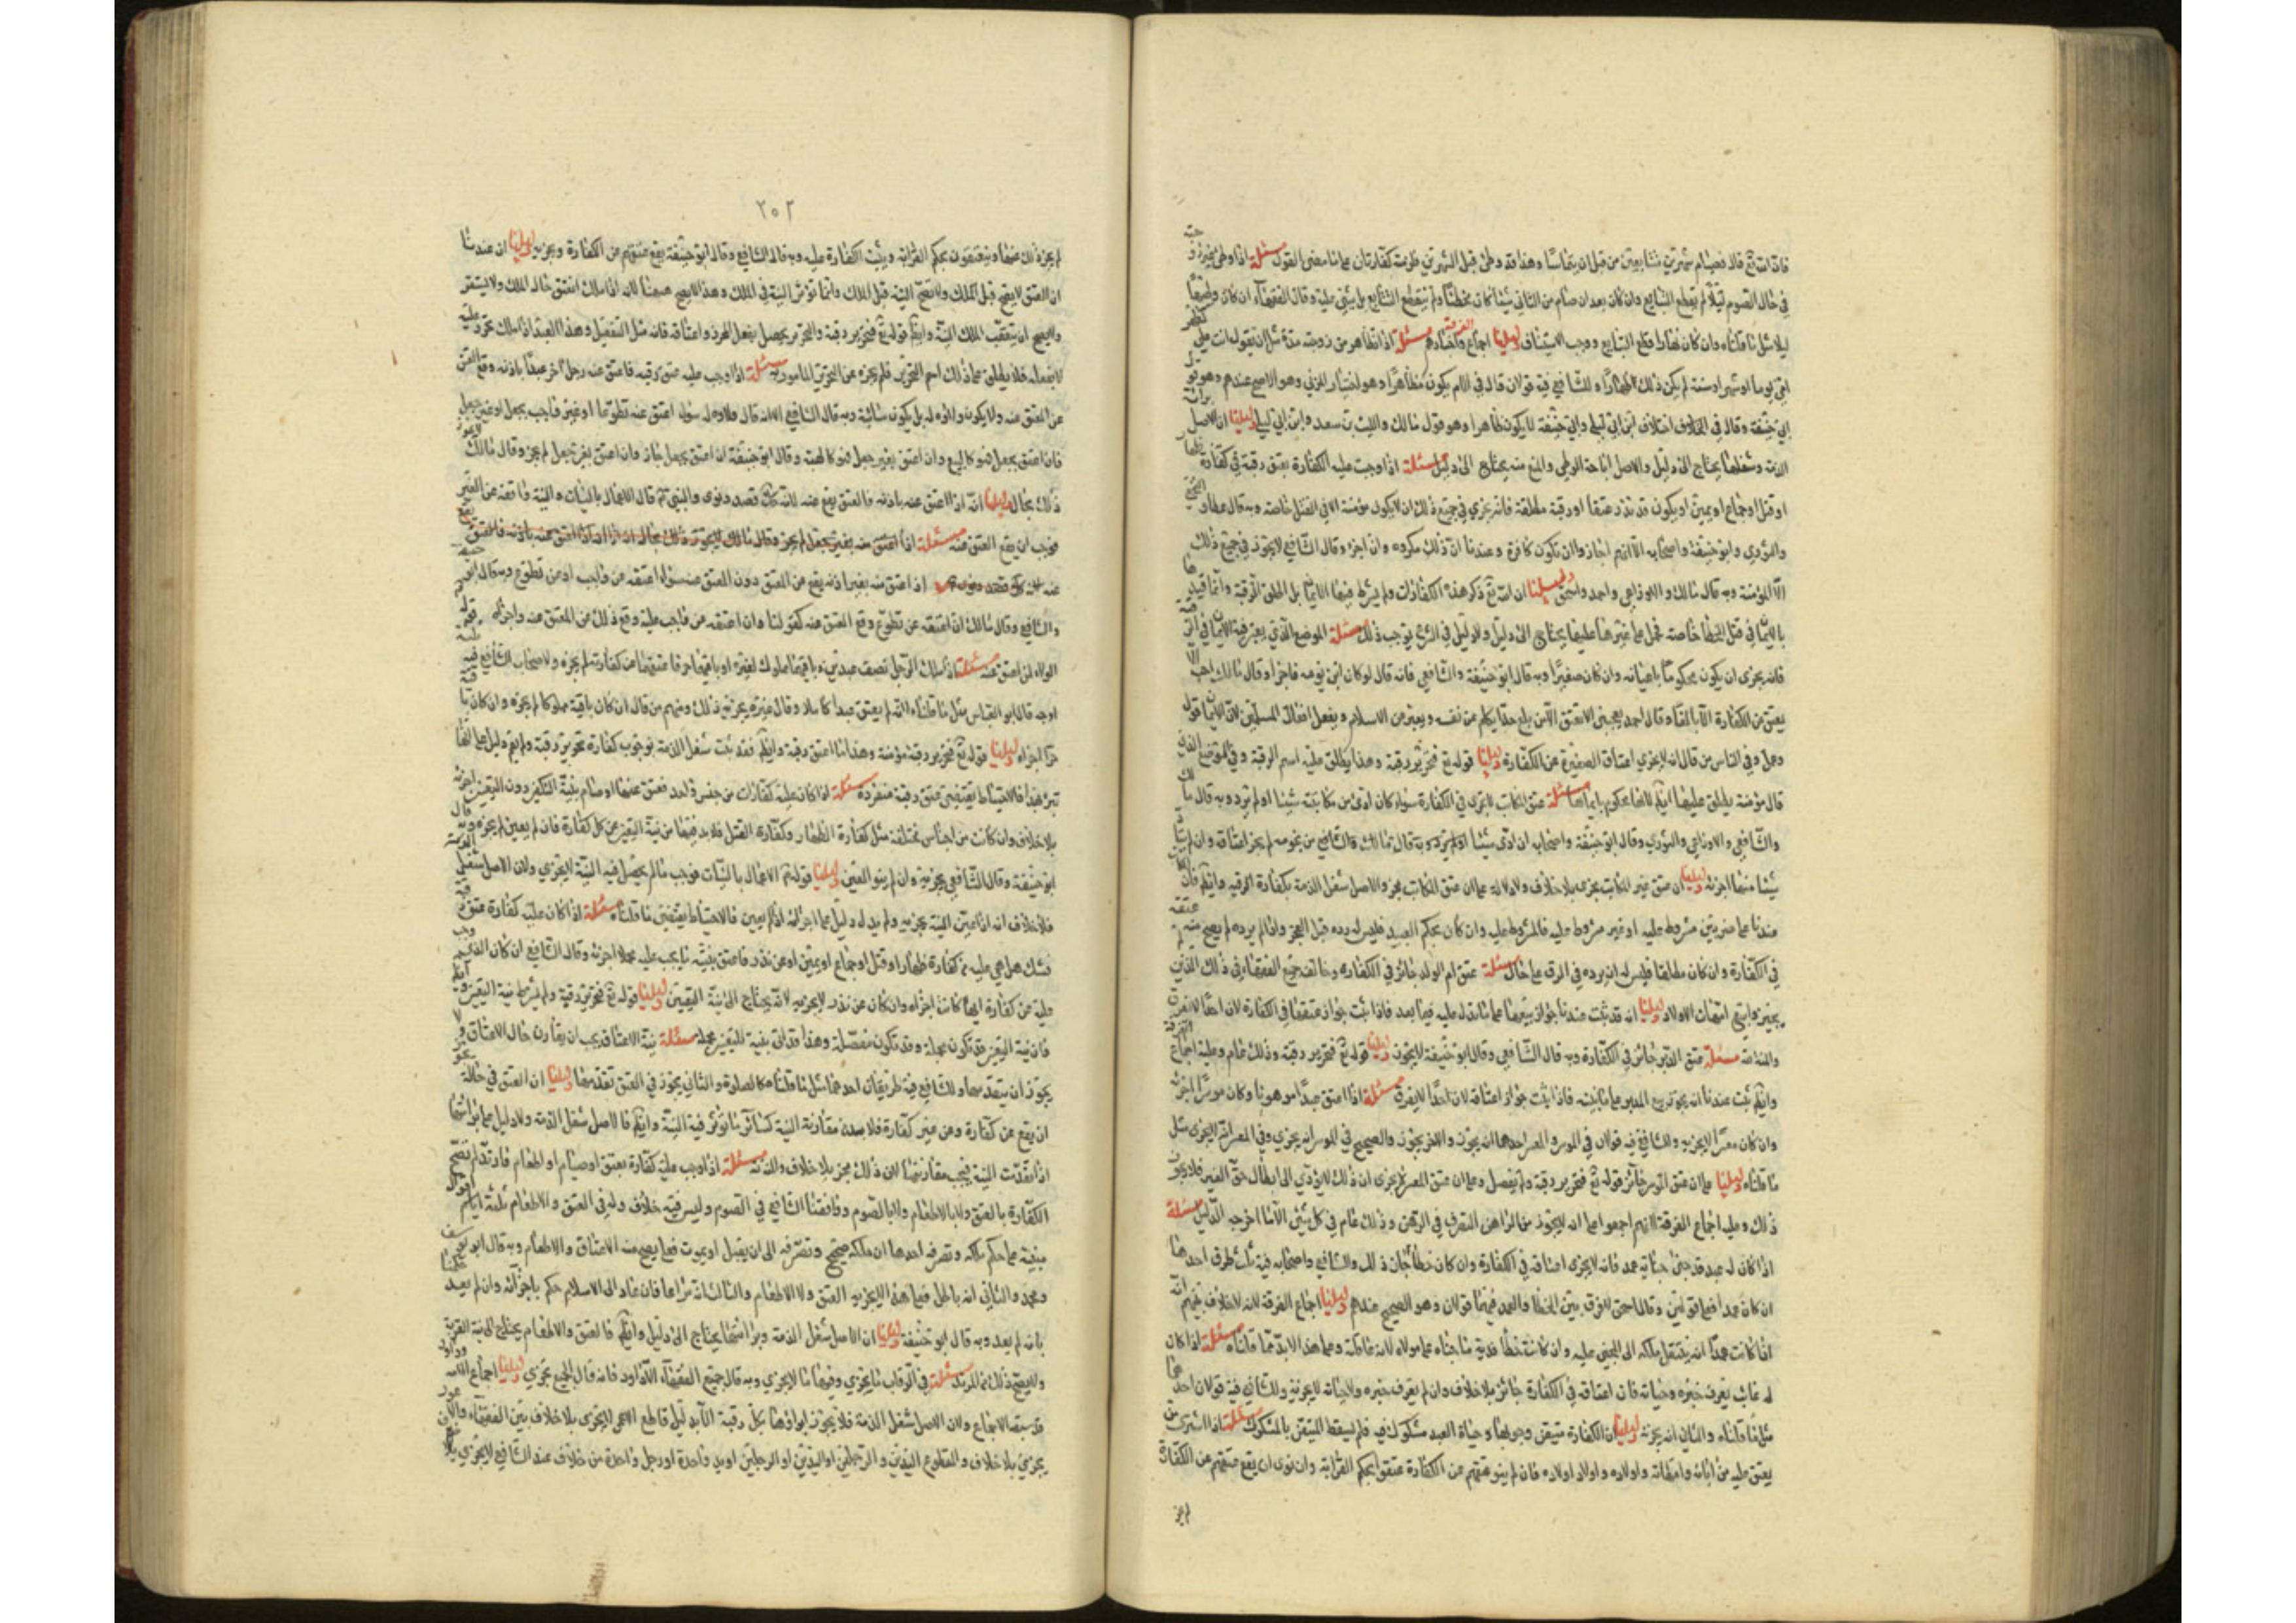 فان الله تع قال فصيام شهرين متتابعين من قبل ان يتماسا وهذا قد وطئ قبل الشهرين فلزمته كفارتان على معنى القول مسئلة اذا وطئ غير زوجته
في حال الصوم ليلا لم يقطع التتابع وان كان بعد ان صام من الثاني شيئا كان مخطئا ولم ينقطع التتابع بل يبنى عليه وقال الفقهاء ان كان وطئها
ليلا مثل ما قلناه وان كان نهارا قطع التتابع ووجب الاستيناف دليلنا اجماع الفرقة واخبارهم مسئلة اذا تظاهر من زوجته مدة مثل ان يقول انت على كظهر
امى يوما او شهرا او سنة لم يكن ذلك ظهارا وللشافعي فيه قولان قال في الام يكون مظاهرا وهو اختيار المزني وهو الاصح عندهم وهو قول
ابي حنيفة وقال في اختلاف ابن ابي ليلى وابي حنيفة لا يكون ظاهرا وهو قول مالك والليث بن سعد وابن ابي ليلى دليلنا ان الاصل براءة
الذمة وشغلها يحتاج الى دليل والاصل اباحة الوطى والمنع منه يحتاج الى دليل مسئلة اذا وجبت عليه الكفارة بعتق رقبة في كفارة ظهار
او قتل او جماع او يمين او يكون قد نذر عتقا او رقبة مطلقة فانه يجزى في جميع ذلك ان لا يكون مؤمنة الا في القتل خاصة وبه قال عطاء والنخعي
والثوري وابو حنيفة واصحابه الا انهم اجازوا ان تكون كافرة وعندنا ان ذلك مكروه وان اجزء وقال الشافعي لا يجوز في جميع ذلك
الا المؤمنة وبه قال مالك والاوزاعي واحمد واسحق دليلنا ان الله تع ذكر هذه الكفارات ولم يشرط فيها الايمان بل اطلق الرقبة وانما قيدها
بالايمان في قتل الخطأ خاصة فحمل غيرها عليها يحتاج الى دليل ولا دليل في الشرع يوجب ذلك مسئلة الموضع الذي يعتبر فيه الايمان في الرقبة
فانه يجزى ان يكون محكوما بايمانه وان كان صغيرا وبه قال ابو حنيفة والشافعي فانه قال لو كان ابن يومه فاجزاه وقال مالك احب الا
يعتق من الكفارة الا بالغا وقال احمد يعجبنى الا يعتق الا من بلغ حدا يتكلم من نفسه ويعبر عن الاسلام ويفعل افعال المسلمين لان الايمان قول
وعمل وفي الناس من قال انه لا يجزى اعتاق الصغيرة عن الكفارة دليلنا قوله تع فتحرير رقبة وهذا يطلق عليه اسم الرقبة وفي الموضع الذي
قال مؤمنة يطلق عليها ايضا لانها محكوم بايمانها مسئلة عتق المكاتب لا يجزى في الكفارة سواء كان ادى من مكاتبته شيئا او لم يؤد وبه قال مالك
والشافعي والاوزاعي والثوري وقال ابو حنيفة واصحابه ان ادى شيئا من نجومه لم يجز اعتاقه وان لم يؤد
شيئا منها اجزئه دليلنا ان عتق غير المكاتب يجزى بلا خلاف ولا دلالة على ان عتق المكاتب مجز والاصل شغل الذمة بكفارة الرقبة وايضا فان المكاتب
عندنا على ضربين مشروط عليه او غير مشروط عليه فالمشروط عليه وان كان بحكم العبيد فليس له رده قبل العجز واذا لم يرده لم يصح منه عتقه
في الكفارة وان كان مطلقا فليس له ان يرده في الرق على حال مسئلة عتق ام الولد جائز في الكفارة وخالف جميع الفقهاء في ذلك الذين لم
يجيزوا بيع امهات الاولاد دليلنا انه قد ثبت عندنا جواز بيعها على ما ندل عليه فيما بعد فاذا ثبت جواز عتقها في الكفارة لان احدا لا يفرق
مسئلة عتق المدبر جائز في الكفارة وبه قال الشافعي وقال ابو حنيفة لا يجوز دليلنا قوله تع فتحرير رقبة وذلك عام وعليه اجماع الفرقة
وايضا ثبت عندنا انه يجوز بيع المدبر على ما نبينه فاذا ثبت جواز اعتاقه لان احدا لا يفرق مسئلة اذا اعتق عبدا مرهونا وكان موسرا اجزئه
وان كان معسرا لا يجزيه وللشافعي فيه قولان في الموسر والمعسر احدهما انه يجوز والاخر لا يجوز والصحيح في الموسر انه يجزى وفي المعسر انه لا يجزى مثل
ما قلناه دليلنا على ان عتق الموسر جائز قوله تع فتحرير رقبة ولم يفصل وعلى ان عتق المعسر لا يجزى ان ذلك يؤدي الى ابطال حق الغير فلا يجوز
ذلك وعليه اجماع الفرقة لانهم اجمعوا على انه لا يجوز من الراهن التصرف في الرهن وذلك عام في كل شئ الا ما اخرجه الدليل مسئلة
اذا كان له عبد قد جنى جناية عمد فانه لا يجزى اعتاقه في الكفارة وان كان خطأ جاز ذلك وللشافعي واصحابه فيه ثلث طرق احدها
ان كان عمدا فعلى قولين وقال اسحق لا فرق بين الخطأ والعمد ففيهما قولان وهو الصحيح عندهم دليلنا اجماع الفرقة لانه لا خلاف بينهم انه
اذا كانت عمدا انه ينتقل ملكه الى المجنى عليه وان كانت خطأ فدية ما جناه على مولاه لانه عاقلته وعلى هذا لا بد مما قلناه مسئلة اذا كان
له غائب يعرف خبره وحياته فان اعتاقه في الكفارة جائز بلا خلاف وان لم يعرف خبره ولا حياته لا يجزئه وللشافعي فيه قولان احدهما
مثل ما قلناه والثاني انه يجزئه دليلنا ان الكفارة متيقن وجوبها وحياة العبد مشكوك فيه فلم يسقط المتيقن بالمشكوك مسئلة اذا اشترى من
يعتق عليه من آبائه وامهاته واولاده واولاد اولاده فان لم ينو عتقهم عن الكفارة عتقوا بحكم القرابة وان نوى ان يقع عتقهم عن الكفارة
لم يجز
٢٥٢
لم يجز ذلك عنها وينعتقون بحكم القرابة ويثبت الكفارة عليه وبه قال الشافعي وقال ابو حنيفة يقع عتقهم عن الكفارة ويجزيه دليلنا ان عندنا
ان العتق لا يصح قبل الملك ولا تصح النية قبل الملك وانما تؤثر النية في الملك وهذا لا يصح هيهنا لانه اذا ملك انعتق حال الملك ولا يستقر
ولا يصح ان يتعقب الملك النية وايضا قوله تع فتحرير رقبة والتحرير يحصل بفعل المحرر واعتاقه فانه مثل التفعيل وهذا العبد اذا ملك تحرر عليه
لا بفعله فلا يطلق على ذلك اسم التحرير فلم يجزه عن التحرير المامور به مسئلة اذا وجب عليه عتق رقبة فاعتق عنه رجل آخر عبدا باذنه وقع العتق
عن المعتق عنه ولا يكون ولاؤه له بل يكون سائبة وبه قال الشافعي الا انه قال ولاؤه له سواء اعتق عنه تطوعا او عن واجب بجعل او غير جعل
فان اعتق بجعل فهو كالبيع وان اعتق بغير جعل فهو كالهبة وقال ابو حنيفة ان اعتق بجعل جاز وان اعتق بغير جعل لم يجز وقال مالك لا يجوز
ذلك بحال دليلنا انه اذا اعتق عنه باذنه فالعتق يقع عنه لانه قصد ونوى والنبي ص قال الاعمال بالنيات والنية واقعة عن الغير
فوجب ان يقع العتق عنه مسئلة اذا اعتق عنه بغير جعل لم يجز وقال مالك لا يجوز ذلك بحال انه اذا اعتق عنه باذنه فالعتق يقع
عنه لانه قصد ونوى اذا اعتق عنه بغير اذنه يقع عن المعتق دون المعتق عنه سواء اعتقه عن واجب او عن تطوع وبه قال ابو حنيفة
والشافعي وقال مالك ان اعتقه عن تطوع وقع المعتق عنه كقولنا وان اعتقه عن واجب عليه وقع ذلك عن المعتق عنه واجزئه دليلنا قوله
الولاء لمن اعتق مسئلة اذا ملك الرجل نصف عبدين وباقيهما مملوك لغيره او باقيهما حر فاعتقهما عن كفارته لم يجزه ولاصحاب الشافعي فيه ثلثة
اوجه قال ابو العباس مثل ما قلناه انه لم يعتق عبدا كاملا وقال غيره يجزيه ذلك ومنهم من قال ان كان باقيه مملوكا لم يجزه وان كان باقيه
حرا اجزاه دليلنا قوله تع فتحرير رقبة مؤمنة وهذا ما اعتق رقبة وايضا فقد ثبت شغل الذمة بوجوب كفارة تحرير رقبة ولم يقم دليل على انها
تبرئ بهذا فالاحتياط يقتضى عتق رقبة منفردة مسئلة اذا كان عليه كفارات من جنس واحد فعتق عنها او صام بنية التكفير دون التعيين اجزئه
بلا خلاف وان كانت من اجناس مختلفة مثل كفارة الظهار وكفارة القتل فلا بد فيها من نية التعيين عن كل كفارة فان لم يعين لم يجزه وبه قال
ابو حنيفة وقال الشافعي يجزيه وان لم ينو التعيين دليلنا قوله ص الاعمال بالنيات فوجب ما لم يحصل فيه النية لا يجزى ولان الاصل شغل الذمة
فلا خلاف انه اذا عين النية يجزيه ولم يدل دليل على اجزائه اذا لم يعين فالاحتياط يقتضى ما قلناه مسئلة اذا كان عليه كفارة عتق رقبة
فشك هل هي عليه من كفارة ظهار او قتل او جماع او يمين او عن نذر فاعتق بنية ما يجب عليه مجملا اجزئه وقال الشافعي ان كان الذي وجب
عليه عن كفارة ايها كانت اجزاه وان كان عن نذر لا يجزيه لانه يحتاج الى نية التعيين دليلنا قوله تع فتحرير رقبة ولم يشرط نية التعيين وايضا
فان نية التعيين قد تكون مجملة وقد تكون مفصلة وهذا قد اتى بنية التعيين مجملة مسئلة نية الاعتاق يجب ان يقارن حال الاعتاق ولا
يجوز ان يتقدمها وللشافعي فيه طريقان احدهما مثل ما قلناه كالصلوة والثاني يجوز في العتق تقدمها دليلنا ان العتق في حالة يجوز
ان يقع عن كفارة وعن غير كفارة فلا بد من مقارنة النية كسائر ما تؤثر فيه النية وايضا فالاصل شغل الذمة ولا دليل على براءتها
اذا تقدمت النية فيجب مقارنتها لان ذلك مجز بلا خلاف مسئلة اذا وجب عليه كفارة بعتق او صيام او اطعام فارتد لم تصح
الكفارة بالعتق ولا بالاطعام ولا بالصوم ووافقنا الشافعي في الصوم وليس فيه خلاف وله في العتق والاطعام ثلثة اقوال
مبنية على حكم ملكه وتصرفه احدها ان ملكه صحيح وتصرفه الى ان يقتل او يموت فعلى هذا يصح منه الاعتاق والاطعام وبه قال ابو يوسف
ومحمد والثاني انه باطل فعلى هذا لا يجزيه العتق ولا الاطعام والثالث انه مراعا فان عاد الى الاسلام حكم باجزائه وان لم يعد حكمنا
بانه لم يعد وبه قال ابو حنيفة دليلنا ان الاصل شغل الذمة وبراءتها يحتاج الى دليل وايضا فالعتق والاطعام يحتاج الى نية القربة
ولا يصح ذلك من المرتد مسئلة في الرقاب ما يجزى وفيها ما لا يجزى وبه قال جميع الفقهاء الا داود فانه قال الجميع يجزى دليلنا اجماع الامة وداود
قد سبقه الاجماع ولان الاصل شغل الذمة فلا يجوز ابراؤها بكل رقبة الا بدليل قاطع الاعمى لا يجزى بلا خلاف بين الفقهاء والاعور
يجزى بلا خلاف والمقطوع اليدين والرجلين او اليدين او الرجلين او يد واحدة او رجل واحدة من خلاف عند الشافعي لا يجزى بلا